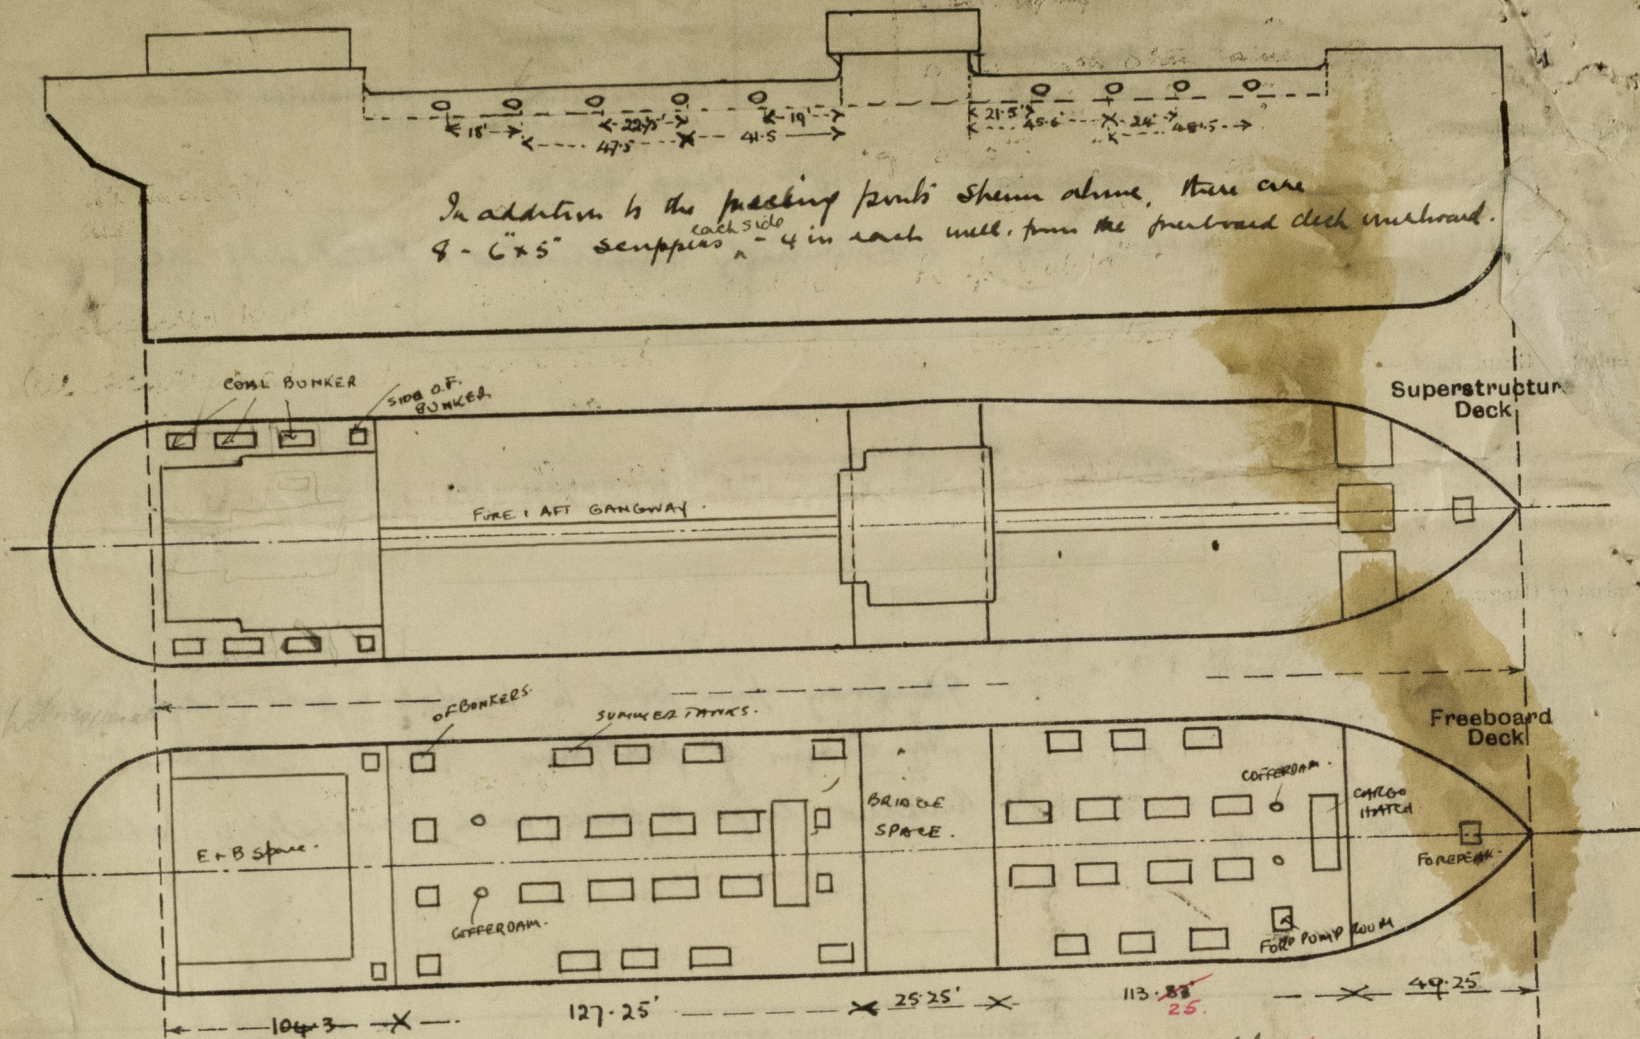 18' 22.75' 19' 21.5' 24'
47.5 41.5 45.6' 48.5'
In addition to the freeing ports shewn above, there are
each side
8 - 6"x5" scuppers ^ - 4 in each well. from the freeboard deck overboard.
COAL BUNKER
SIDE O.F.
BUNKER
Superstructur
Deck
FORE & AFT GANGWAY.
OF BUNKERS.
SUMMER TANKS.
Freeboard
Deck
COFFERDAM.
BRIDGE
SPACE.
CARGO
HATCH
E+B Space.
FOREPEAK.
COFFERDAM.
FORD PUMP ROOM
104.3 127.25' 25.25' 113.83' 49.25
25.